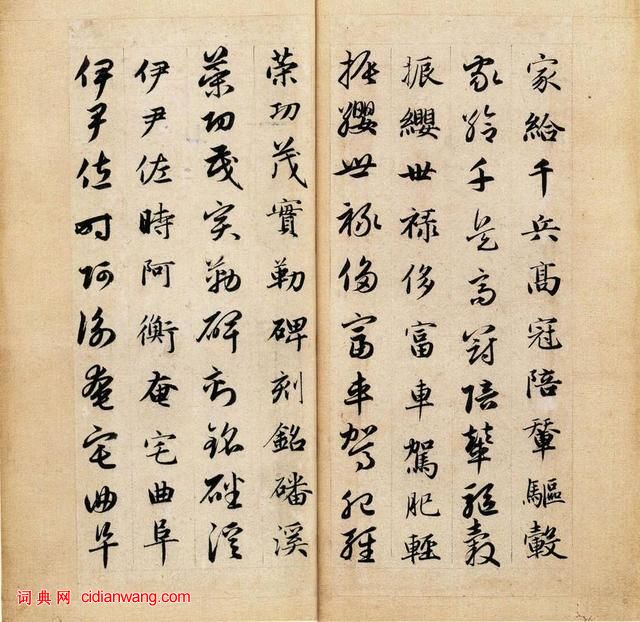 家給千兵高冠陪輦驅轂
家給千兵高冠陪輦驅轂
振纓世祿侈富車駕肥輕
振纓世祿侈富車駕肥輕
策功茂實勒碑刻銘磻溪
策功茂實勒碑刻銘磻溪
伊尹佐時阿衡奄宅曲阜
伊尹佐時阿衡奄宅曲阜
词典网 cidianwang.com